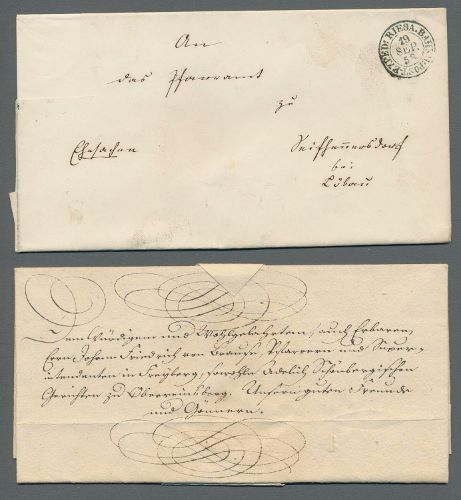 An
das Pfarramt
zu
Ehesachen
Seifhennersdorf
bei
Löbau
RIESA. BAHN. POST. EXPED:
29
SEP
58
Dem Würdigen und Wohlgelahrtem, auch Erbaren,
Herrn Johann Friedrich von Brause, Pfarrern und Super-
intendenten in Freyberg, Adelich Schönbergischen
Gerichten zu Oberreinsberg. Unsern guten Freunde
und Gönnern.